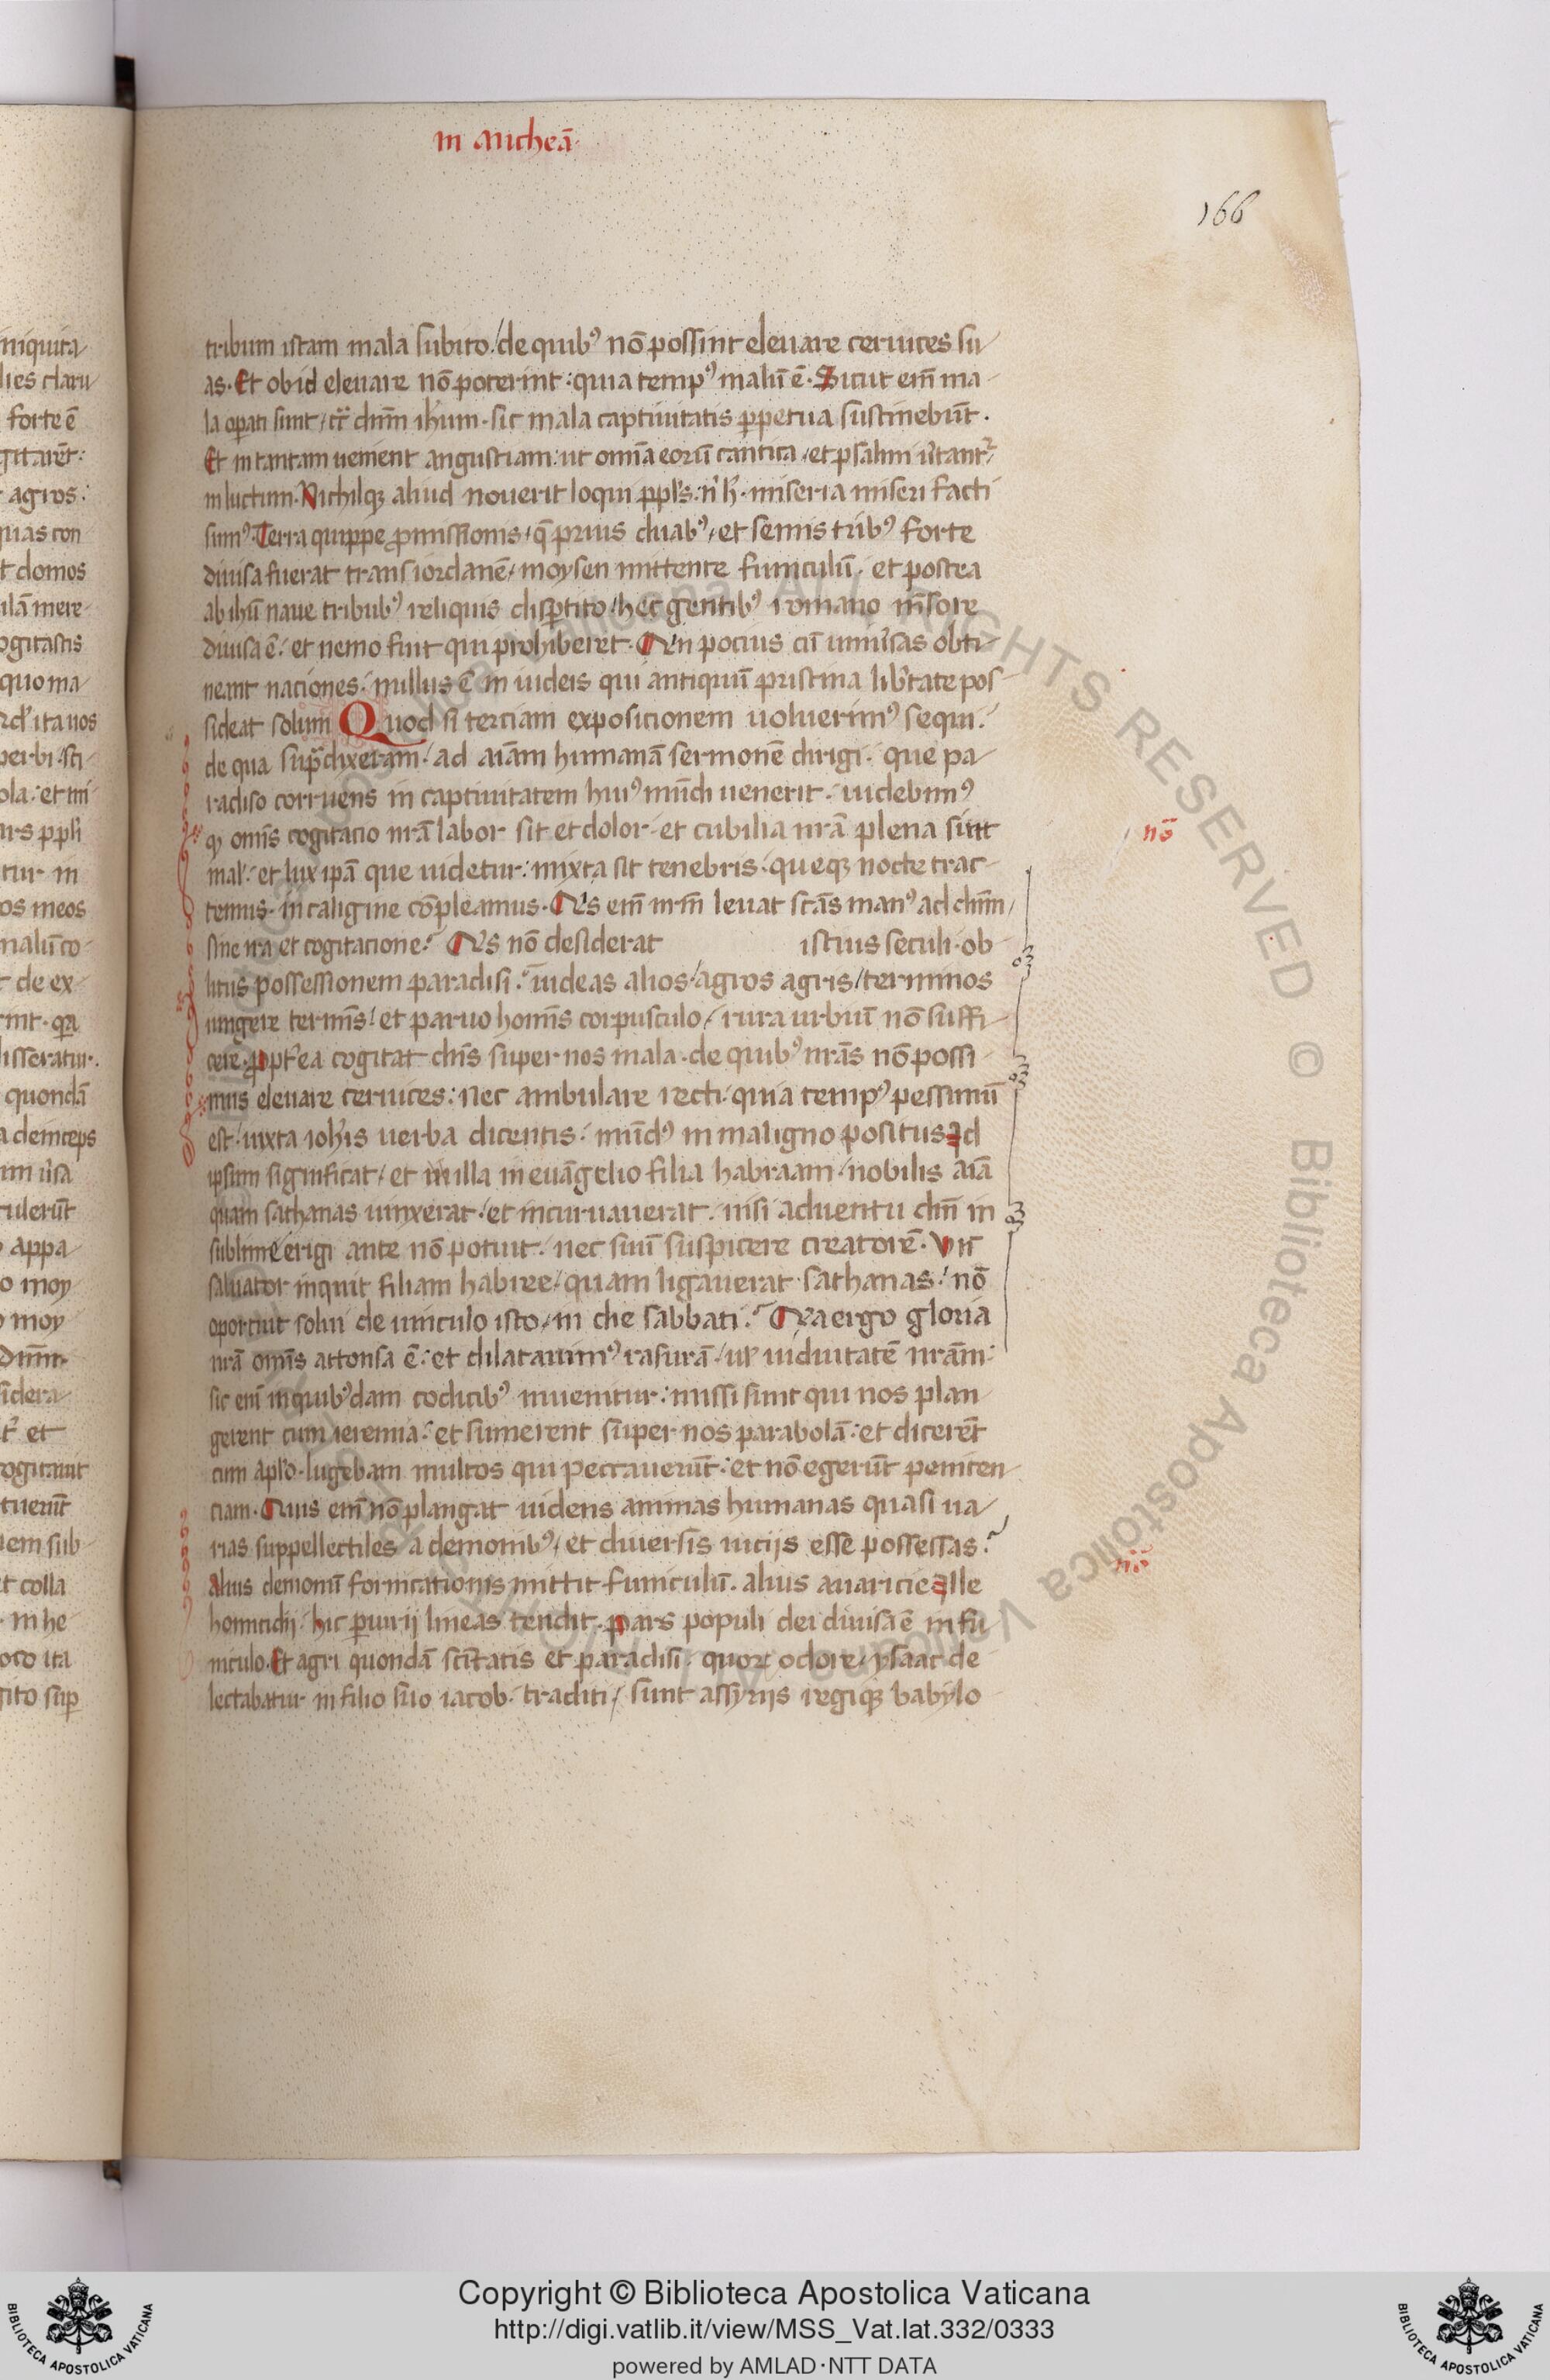 in micheā·
166
tribum istam mala subito/ de quibꝰ nō possint eleuare ceruices su
as. Et ob id eleuare nō poterint: quia tempꝰ malū ē. Sicut em̄ ma
la opati sunt, dn̄m ih'um. sic mala captiuitatis ꝑpetua sustinebūt.
Et in tantam uenient angustiam: ut omīa eorū cantica, et psalmi
in luctum. Nichilqꝫ aliud nouerit loqui ppl's. miseria miseri facti
sumꝰ. Terra quippe ꝓmissionis, q̄ prius duabꝰ, et semis tribꝰ forte
diuisa fuerat trans iordanē, moysen mittente funiculū. et postea
ab ihū naue tribubꝰ reliquis disꝑtito/ hec gentibꝰ romano m̄sore
diuisa ē. et nemo fuit qui prohiberet. pocius cū obti
neant naciones. nullus ē in iudeis qui antiquū pristina lib'tate pos
sideat solum Quod si terciam exposicionem uoluerimꝰ sequi.
de qua sup dixeram. ad aīam humanā sermonē dirigi. que pa
radiso corruens in captiuitatem huiꝰ mūdi uenerit. uidebimꝰ
omīs cogitacio nr̄a labor sit et dolor. et cubilia nr̄a plena sint
mal'. et lux ipā que uidetur: mixta sit tenebris. queqꝫ nocte trac
temus. in caligine cōpleamus. Q's em̄ nr̄m leuat sc̄as manꝰ ad dn̄m/
sine ira et cogitacione? Q's nō desiderat istius seculi. ob
litus possessionem paradisi? iudeas alios/ agros agris/ terminos
iungere termīs/ et paruo homīs corpusculo/ rura urbiū nō suffi
cere. ꝓpt'ea cogitat dn̄s super nos mala. de quibꝰ nr̄as nō possi
mus eleuare ceruices: nec ambulare recti. quia tempꝰ pessimū
est/ iuxta ioh'is uerba dicentis. mūdꝰ in maligno positus Id
ipsum significat/ et illa in euāgelio filia habraam/ nobilis aīa
quam sathanas uinxerat. et incuruauerat. nisi aduentu dn̄i in
sublime erigi ante nō potuit. nec suū suspicere creatorē. Vn
saluator inquit filiam habree/ quam ligauerat sathanas/ nō
oportuit solui de uinculo isto/ in die sabbati? Quia ergo gloria
nr̄a omīs attonsa ē. et dilatauimꝰ rasurā/ uiduitatē nr̄am:
sic eni in quibꝰdam codicibꝰ inuenitur: missi sunt qui nos plan
gerent cum ieremia. et sumerent super nos parabolā. et dicerēt
cum apl'o. lugebam multos qui peccauerūt. et nō egerūt peniten
ciam. Quis em̄ nō plangat uidens animas humanas quasi ua
rias suppellectiles a demonibꝰ, et diuersis uicijs esse possessas?
Alius demonū fornicationis mittit funiculū. alius auaricie Ille
homicidij. hic ꝑiurij lineas tendit. Pars populi dei diuisa ē in fu
niculo. Et agri quondā sc̄itatis et paradisi. quorꝫ odore, ysaac de
lectabatur in filio suo iacob. traditi, sunt assyriis regiqꝫ babylo
nō
Copyright © Biblioteca Apostolica Vaticana
http://digi.vatlib.it/view/MSS_Vat.lat.332/0333
powered by AMLAD·NTT DATA
BIBLIOTECA APOSTOLICA VATICANA
BIBLIOTECA APOSTOLICA VATICANA